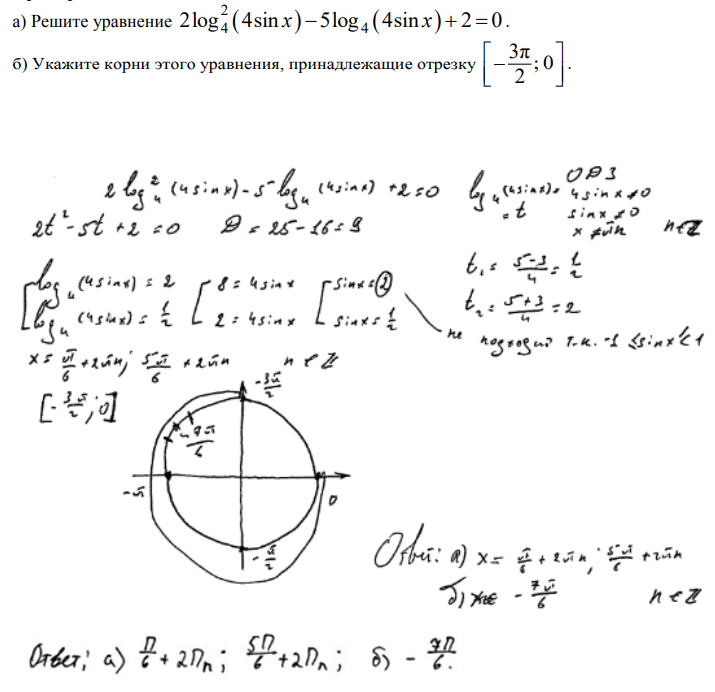 а) Решите уравнение 2log₄²(4sin x) − 5log₄(4sin x) + 2 = 0.
б) Укажите корни этого уравнения, принадлежащие отрезку [−3π/2; 0].
2 log₄² (4sinx) - 5 log₄ (4sinx) + 2 = 0
log₄ (4sinx) = t
ОДЗ
4sinx ≠ 0
sinx ≠ 0
x ≠ πn n∈Z
2t² - 5t + 2 = 0 D = 25 - 16 = 9
t₁ = (5-3)/4 = 1/2
t₂ = (5+3)/4 = 2
[ log₄ (4sinx) = 2 [ 8 = 4sinx [ sinx = 2
log₄ (4sinx) = 1/2 2 = 4sinx sinx = 1/2
не подходит т.к. -1 ≤ sinx ≤ 1
x = π/6 + 2πn; 5π/6 + 2πn n ∈ Z
[-3π/2; 0]
-3π/2
-7π/6
-π
0
-π/2
Ответ: а) x = π/6 + 2πn; 5π/6 + 2πn
б) -7π/6 n ∈ Z
Ответ: а) П/6 + 2Пn; 5П/6 + 2Пn; б) - 7П/6.